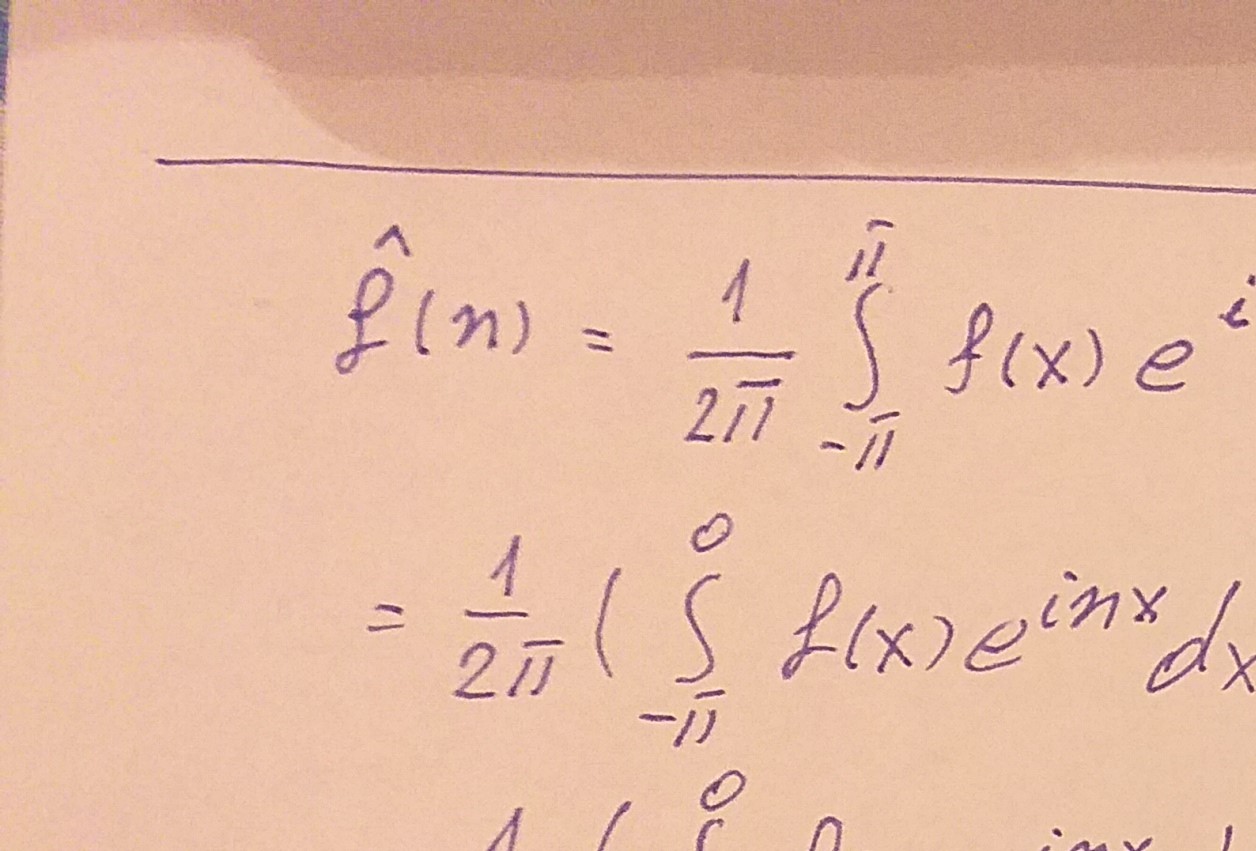 f̂(n) = 1/2π ∫_{-π}^{π} f(x) e^{i
= 1/2π ( ∫_{-π}^{0} f(x) e^{inx} dx